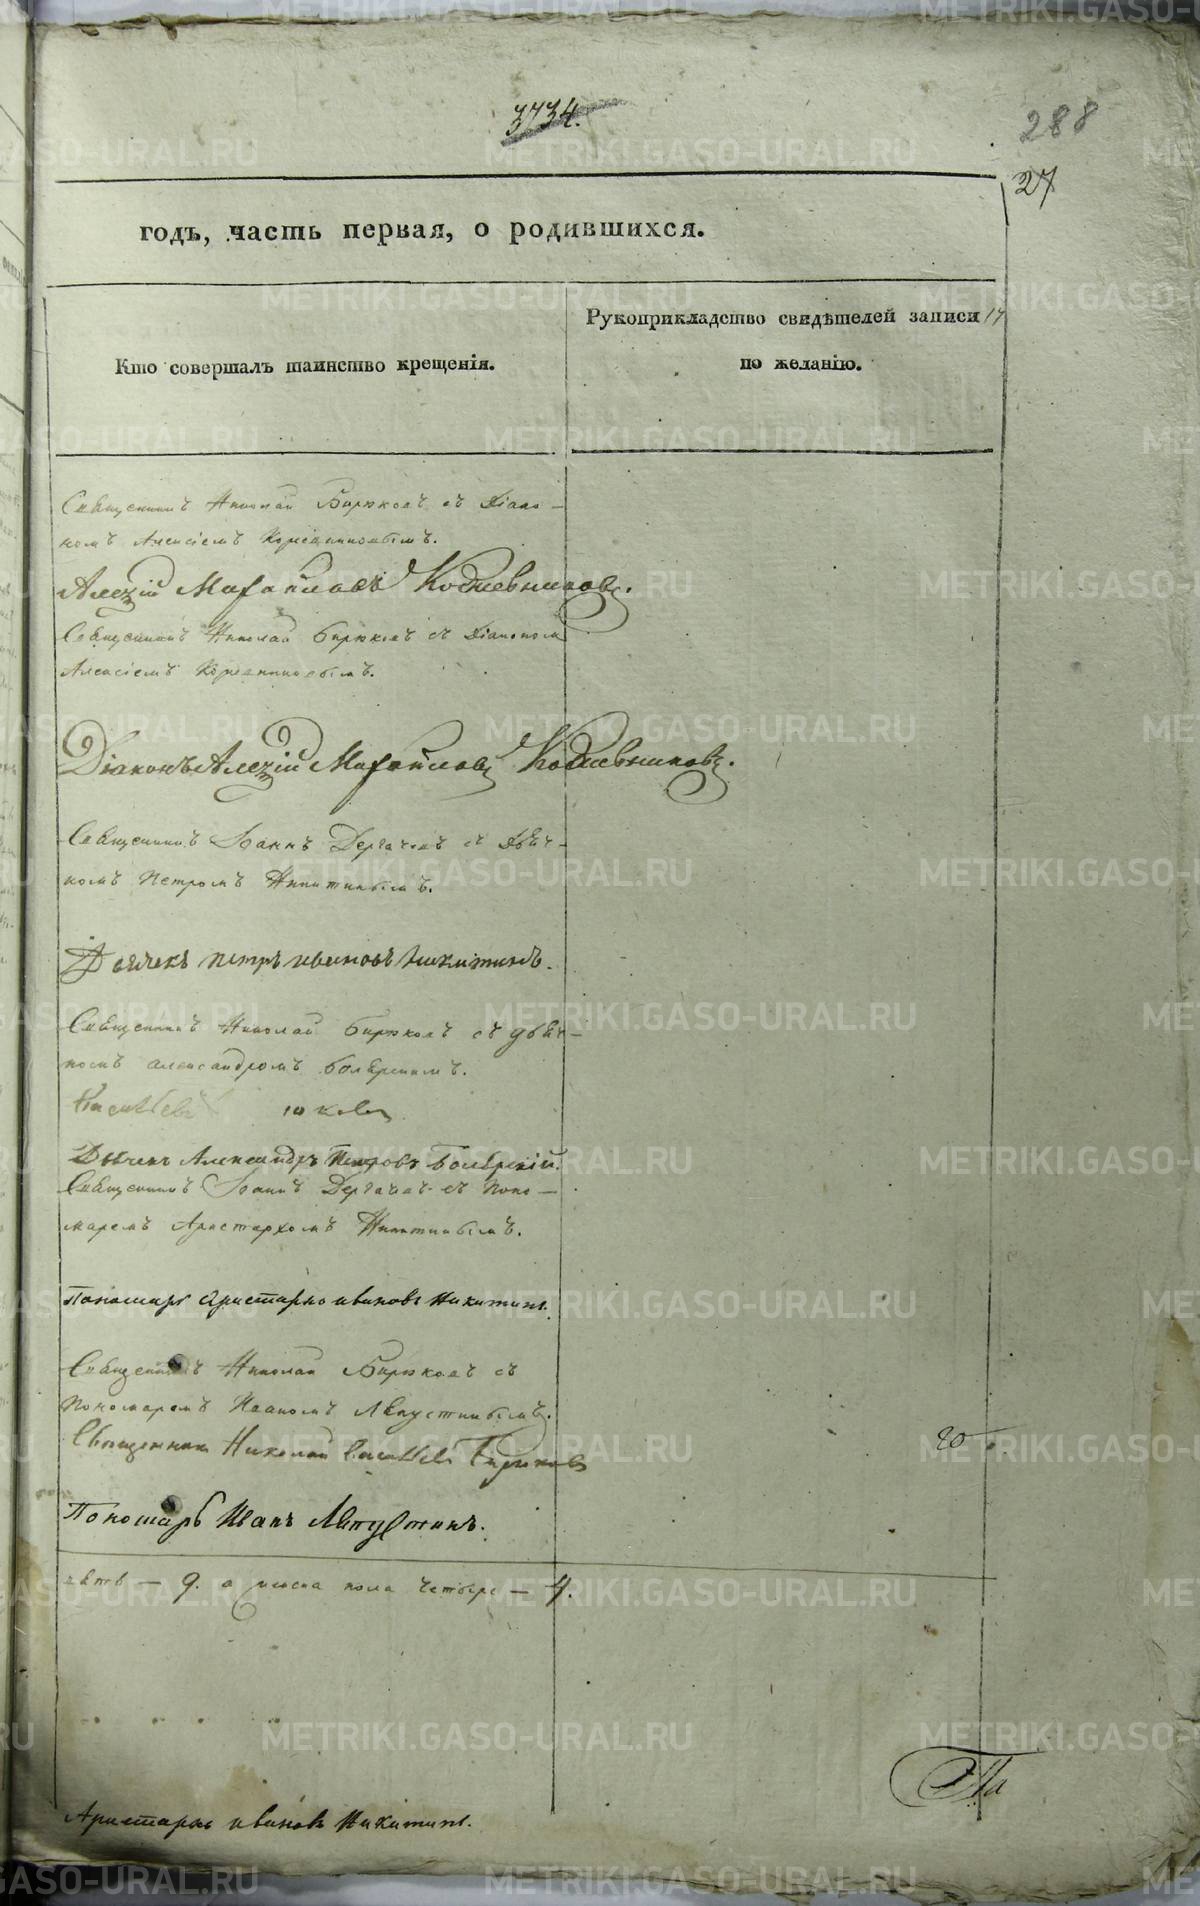 3734.
288
27
годъ, часть первая, о родившихся.
Кто совершалъ таинство крещенія.
Рукоприкладство свидѣтелей записи 17
по желанію.
Священникъ Николай Бирюковъ съ Діако-
номъ Алексіемъ
Алексій Михайловъ Кожевниковъ.
Священникъ Николай Бирюковъ съ Діакономъ
Алексіемъ
Діаконъ Алексій Михайловъ Кожевниковъ.
Священникъ Іоаннъ Дергачевъ съ Дьяч-
комъ Петромъ Никитинымъ.
Дьячекъ Петръ Ивановъ Никитинъ.
Священникъ Николай Бирюковъ съ дьяч-
комъ Александромъ Болярскимъ.
Васильевъ
Дьячекъ Александръ Петровъ Болярскій.
Священникъ Іоаннъ Дергачевъ съ Поно-
маремъ Аристархомъ Никитинымъ.
Пономарь Аристархъ Ивановъ Никитинъ.
Священникъ Николай Бирюковъ съ
Пономаремъ Иваномъ Августинымъ.
Священникъ Николай Васильевъ Бирюковъ
20
Пономарь Иванъ Августинъ.
— 9. а женска пола четыре — 4.
Па
Аристархъ Ивановъ Никитинъ.
METRIKI.GASO-URAL.RU